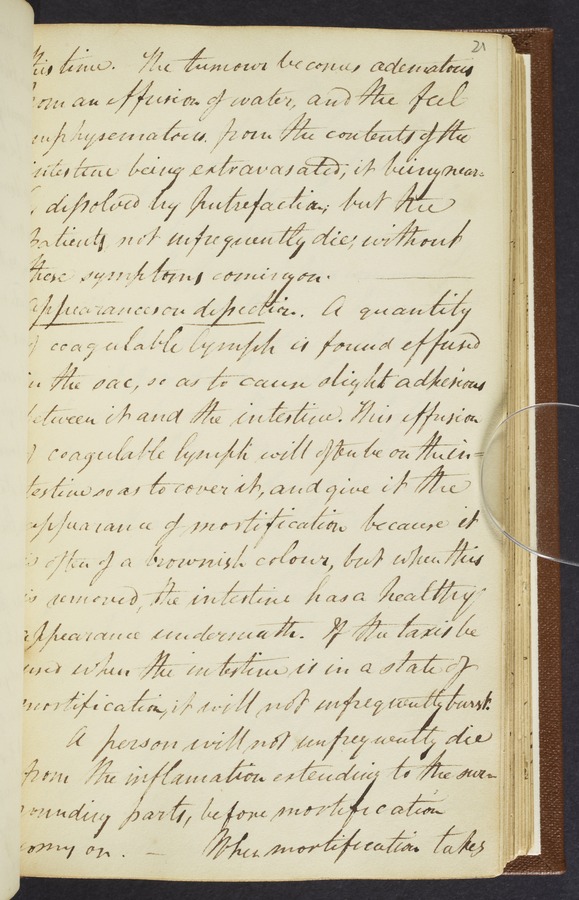 21
this time. The tumour becomes ademotous
from an effusion of water, and the feel
emphysematous from the contents of the
intestine being extravasated; it being near=
ly dissolved by putrefaction; but the
Patients not unfrequently die, without
these symptoms coming on.
Appearances on dissection. A quantity
of coagulable lymph is found effused
in the sac, so as to cause slight adhesions
between it and the intestine. This effusion
of coagulable lymph will often be on the in=
testine so as to cover it, and give it the
appearance of mortification because it
is often of a brownish colour, but when this
is removed, the intestine has a healthy
appearance underneath. If the taxis be
used when the intestine is in a state of
mortification, it will not unfrequently burst.
A person will not unfrequently die
from the inflamation extending to the sur=
rounding parts, before mortification
coming on. — When mortification takes